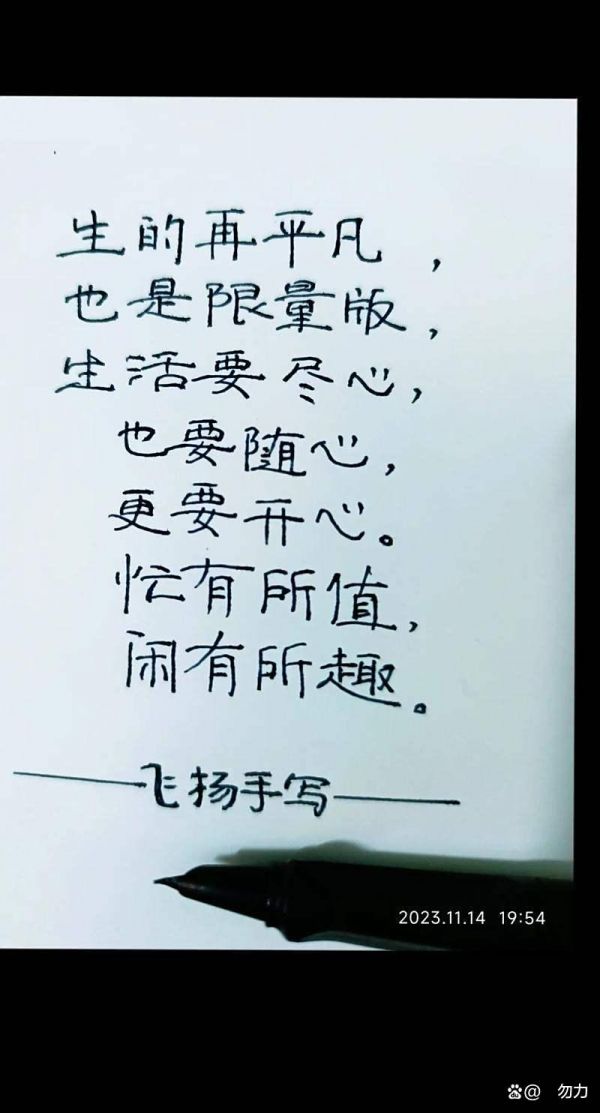 生的再平凡，
也是限量版，
生活要尽心，
也要随心，
更要开心。
忙有所值，
闲有所趣。
——飞扬手写——
2023.11.14 19:54
@ 勿力